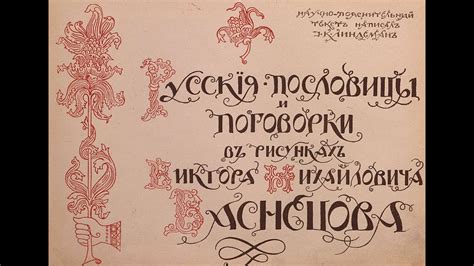 научно-пояснительный
текстъ написалъ
І·К·Линдеманъ
Русскія пословицы
и
поговорки
въ рисункахъ
Виктора Михайловича
Васнецова